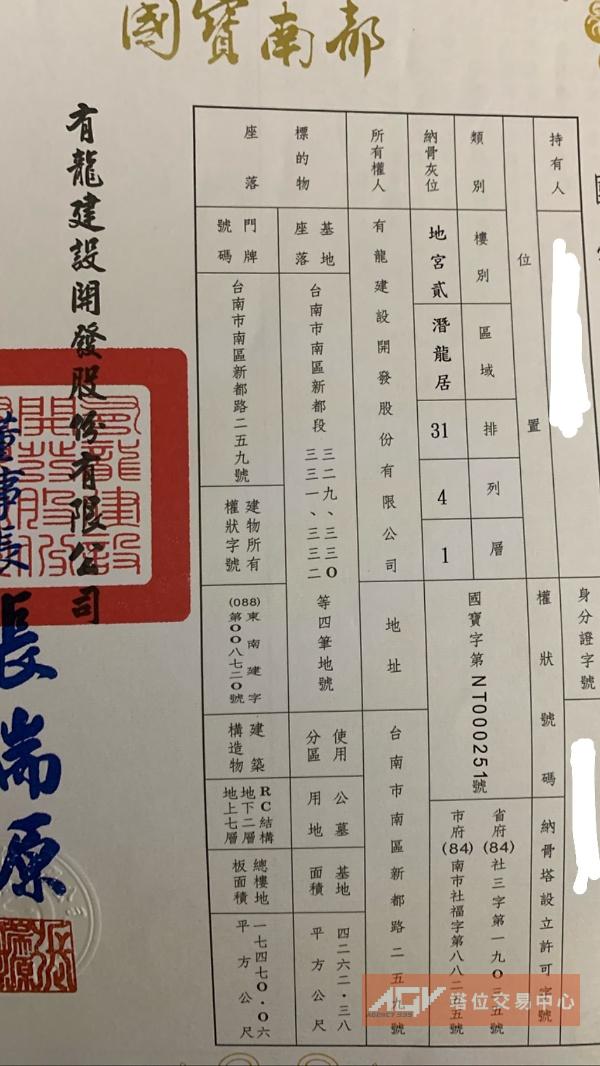 國寶南都
持有人
身分證字號
位置
權狀號碼
國寶字第NT000251號
納骨塔設立許可字號
省府(84)社三字第一九0三五號
市府(84)南市社福字第八八二五五號
類別
樓別
區域
排
列
層
納骨灰位
地宮貳
潛龍居
31
4
1
所有權人
有龍建設開發股份有限公司
地址
台南市南區新都路二五九號
標的物
座落
基地座落
台南市南區新都段
三二九、三三0
三三一、三三二
等四筆地號
使用分區
公墓用地
基地面積
四二六二.三八
平方公尺
門牌號碼
台南市南區新都路二五九號
建物所有權狀字號
(088)東南建字
第00八七二0號
建築構造物
RC結構
地下二層
地上七層
總樓地板面積
一七四七0.0六
平方公尺
有龍建設開發股份有限公司
董事長
張瑞原
AGV
AGENCY 999
塔位交易中心